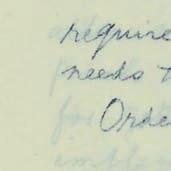 require
needs t
Orde